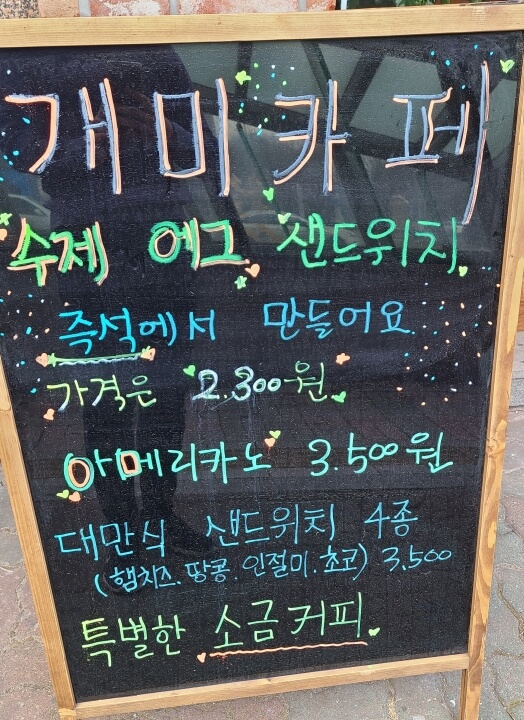 개미카페
수제 에그 샌드위치
즉석에서 만들어요
가격은 2.300원
아메리카노 3.500원
대만식 샌드위치 4종
(햄치즈.땅콩.인절미.초코) 3,500
특별한 소금커피